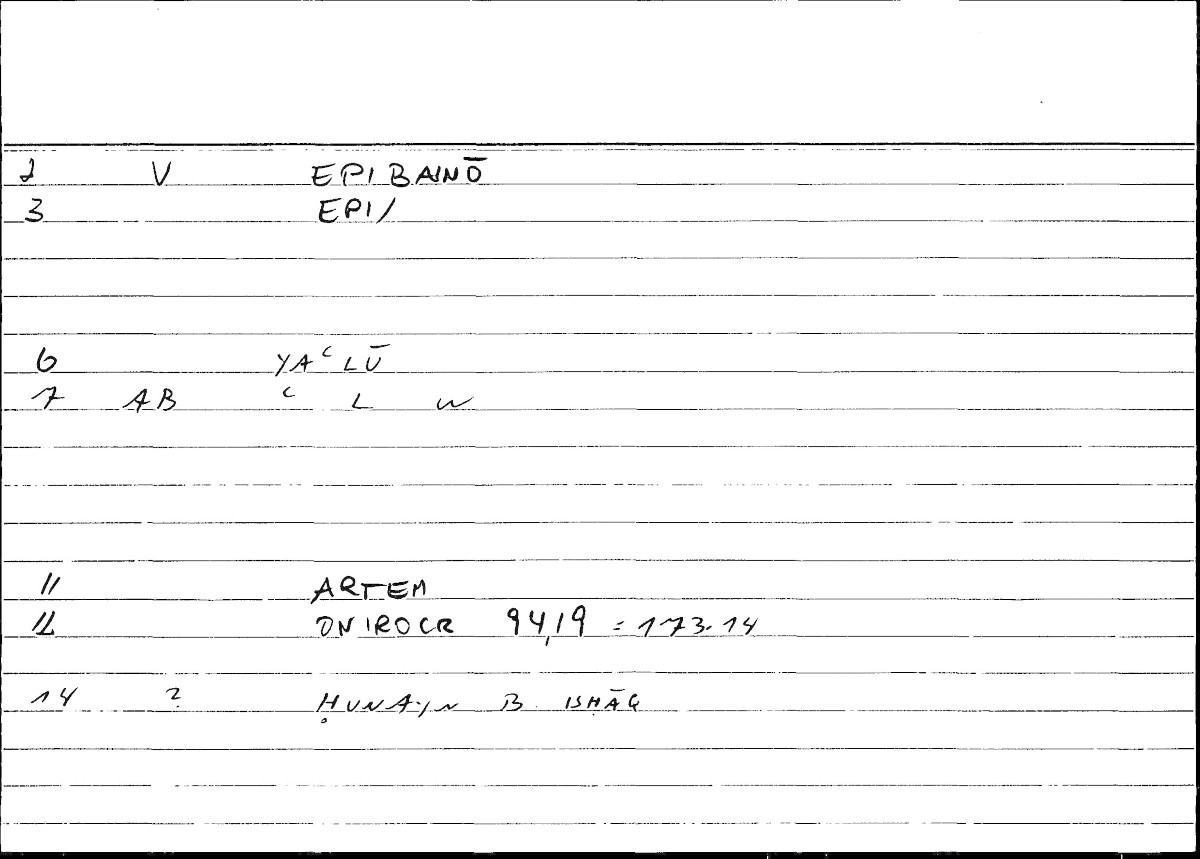 2 V EPIBAINŌ
3 EPI/
6 YAʿLŪ
7 AB ʿ L W
11 ARTEM
12 ONIROCR 94,19 = 173.14
14 ? ḤUNAYN B ISḤĀQ